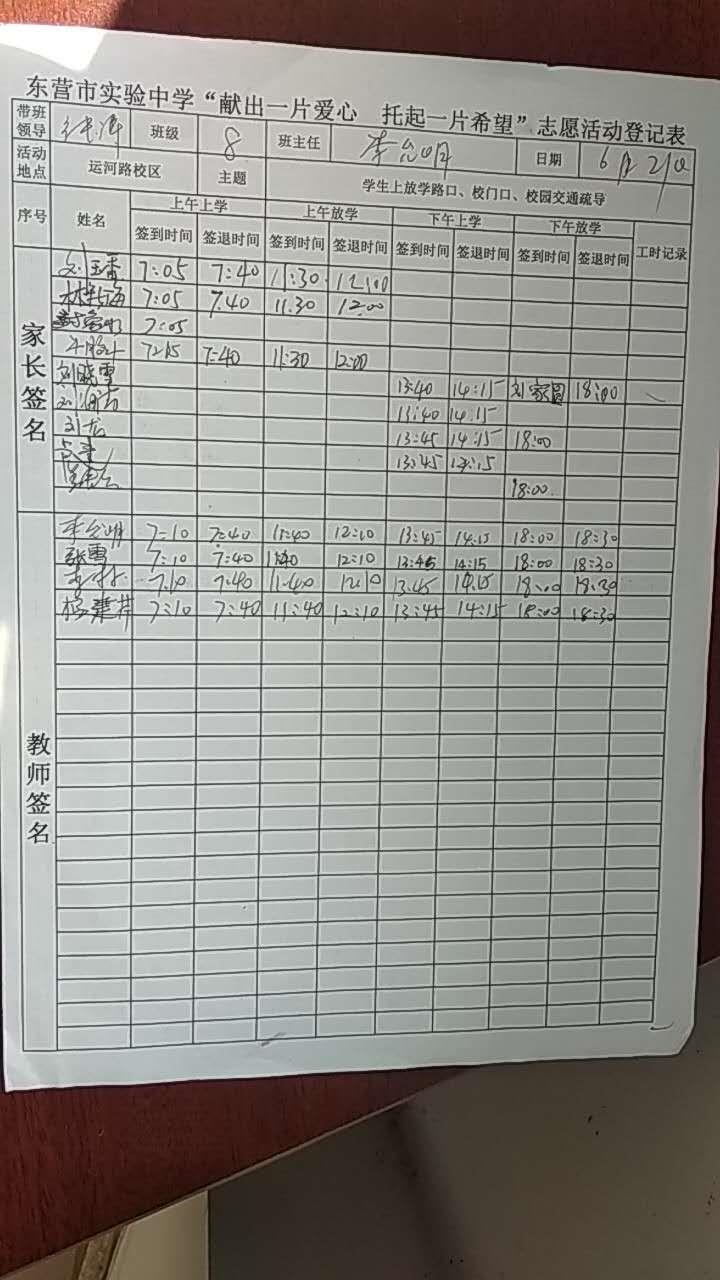 东营市实验中学“献出一片爱心 托起一片希望”志愿活动登记表
带班领导 班级 8 班主任 李 明 日期 6月21日
活动地点 运河路校区 主题 学生上放学路口、校门口、校园交通疏导
序号 姓名 上午上学 上午放学 下午上学 下午放学 工时记录
签到时间 签退时间 签到时间 签退时间 签到时间 签退时间 签到时间 签退时间
家长签名
刘玉香 7:05 7:40 11:30 12:00
林 海 7:05 7:40 11:30 12:00
7:05
7:15 7:40 11:30 12:00
刘晓雪 13:40 14:15 刘家圆 18:00
刘 13:40 14:15
刘 13:45 14:15 18:00
13:45 14:15
18:00
教师签名
李 明 7:10 7:40 11:40 12:10 13:45 14:15 18:00 18:30
张雪 7:10 7:40 11:40 12:10 13:45 14:15 18:00 18:30
李 7:10 7:40 11:40 12:10 13:45 14:15 18:00 18:30
杨建芹 7:10 7:40 11:40 12:10 13:45 14:15 18:00 18:30